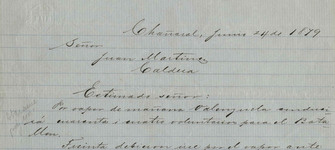 Chañaral, Junio 24 de 1879
Señor
Juan Martinez
Caldera
Estimado señor:
Por vapor de mañana Valenzuela conduci
rá cuarenta i cuatro voluntarios para el Bata
llon.
Siento deberse me por el vapor ante